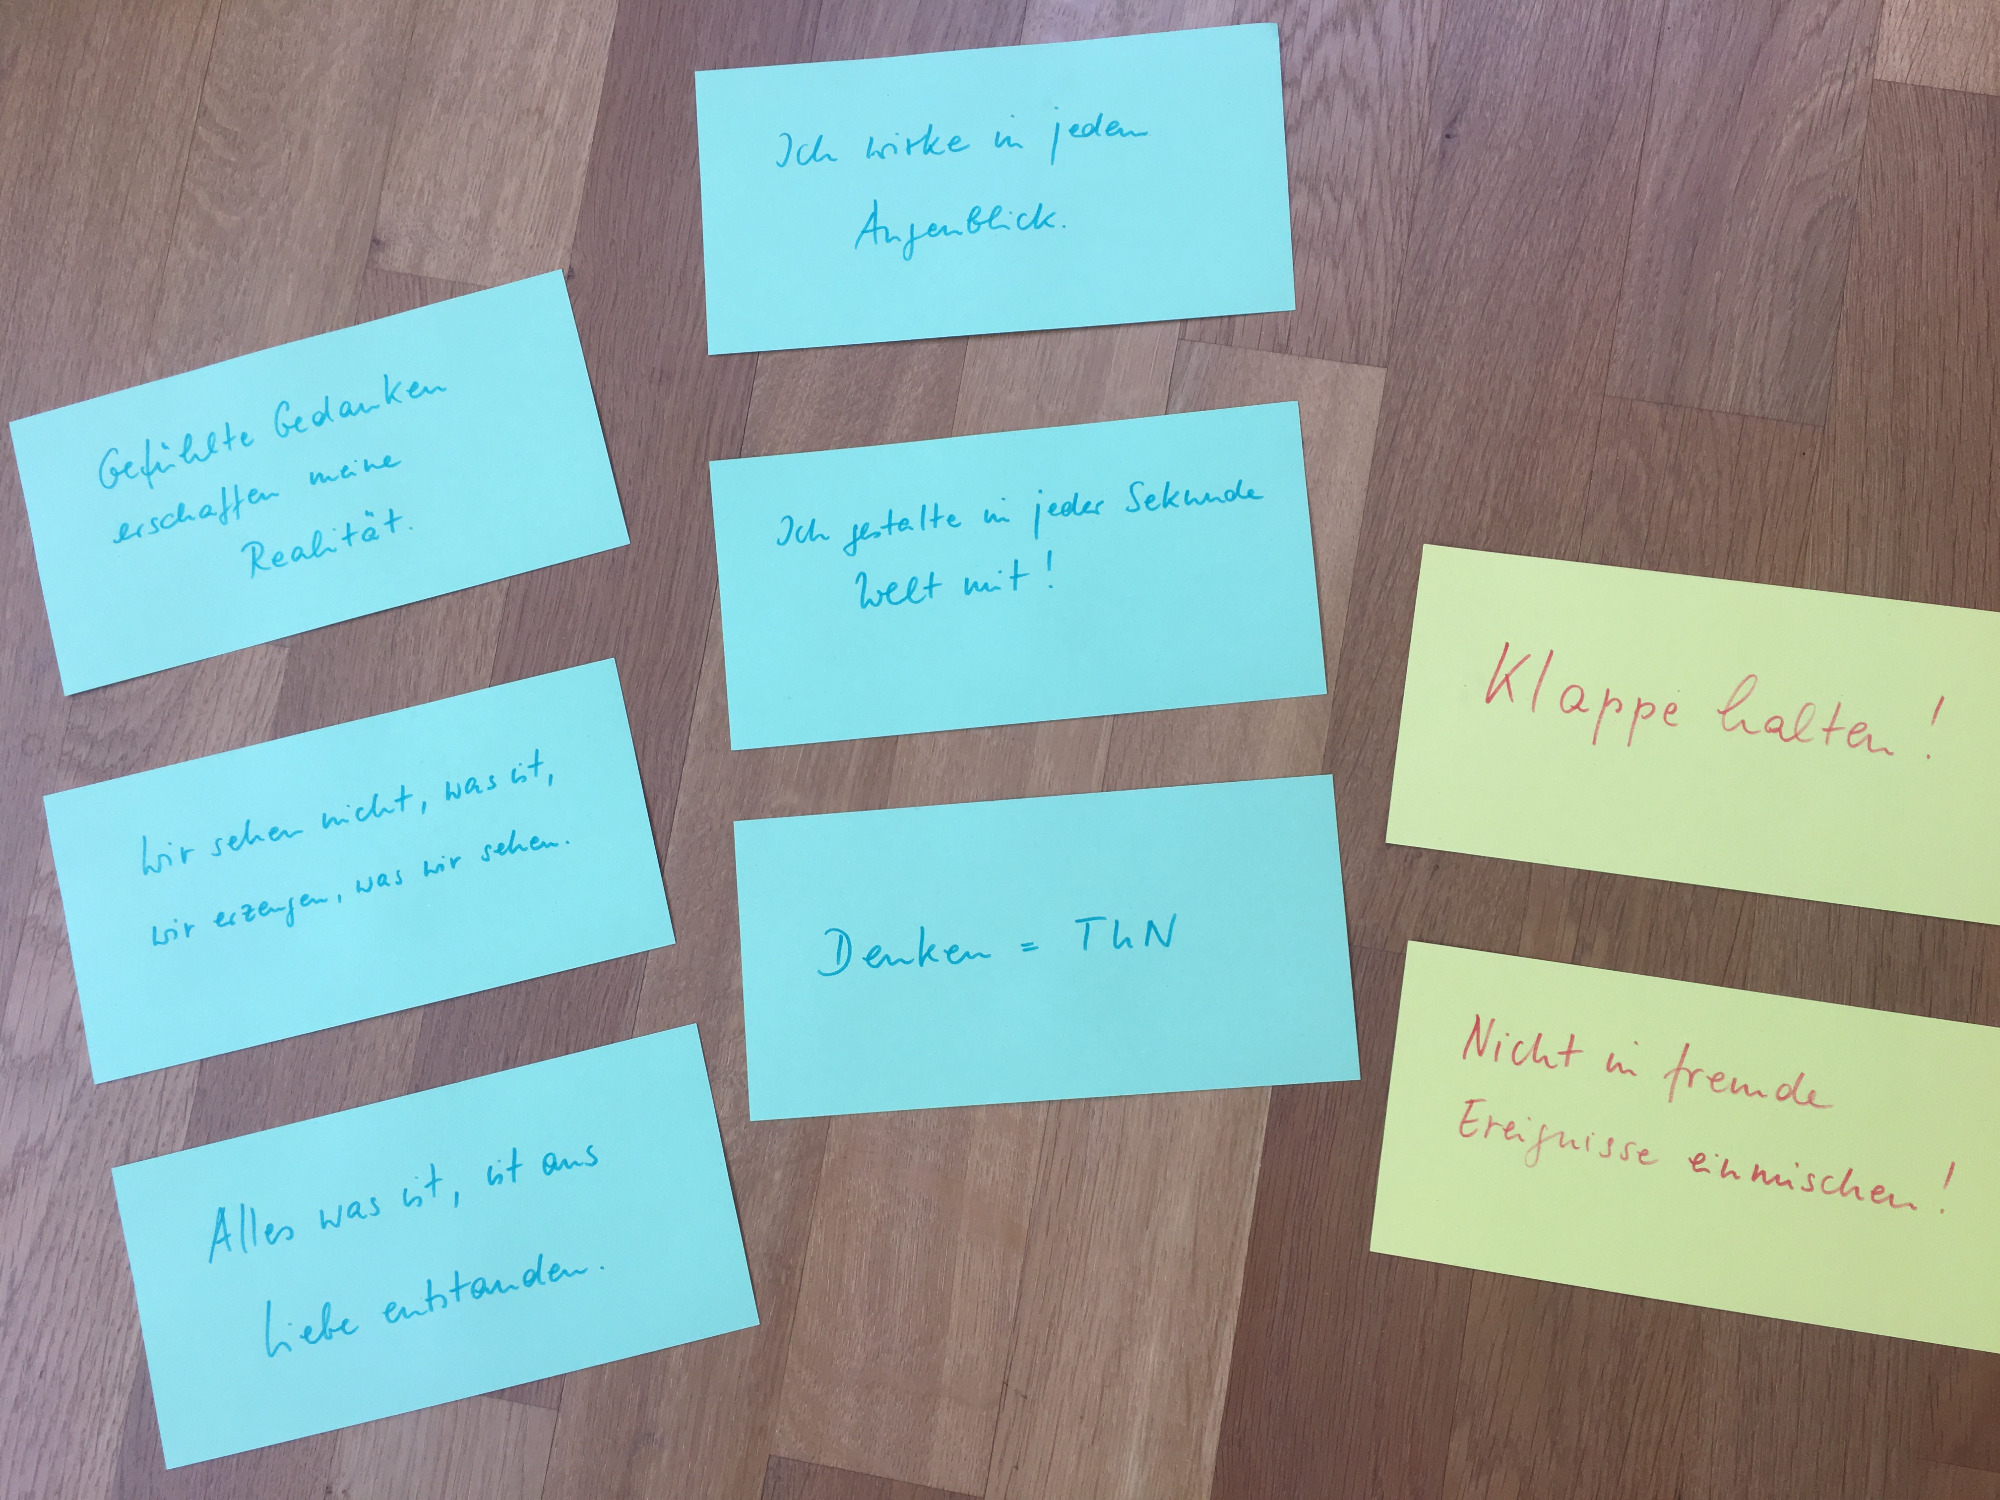 Gefühlte Gedanken
erschaffen meine
Realität.
Wir sehen nicht, was ist,
wir erzeugen, was wir sehen.
Alles was ist, ist aus
Liebe entstanden.
Ich wirke in jedem
Augenblick.
Ich gestalte in jeder Sekunde
Welt mit!
Denken = TUN
Klappe halten!
Nicht in fremde
Ereignisse einmischen!